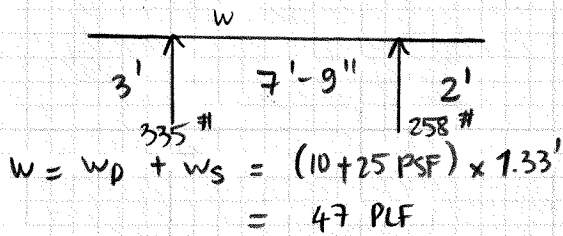 w
3' 7'-9" 2'
335 # 258 #
w = w_D + w_S = (10+25 PSF) x 1.33'
= 47 PLF